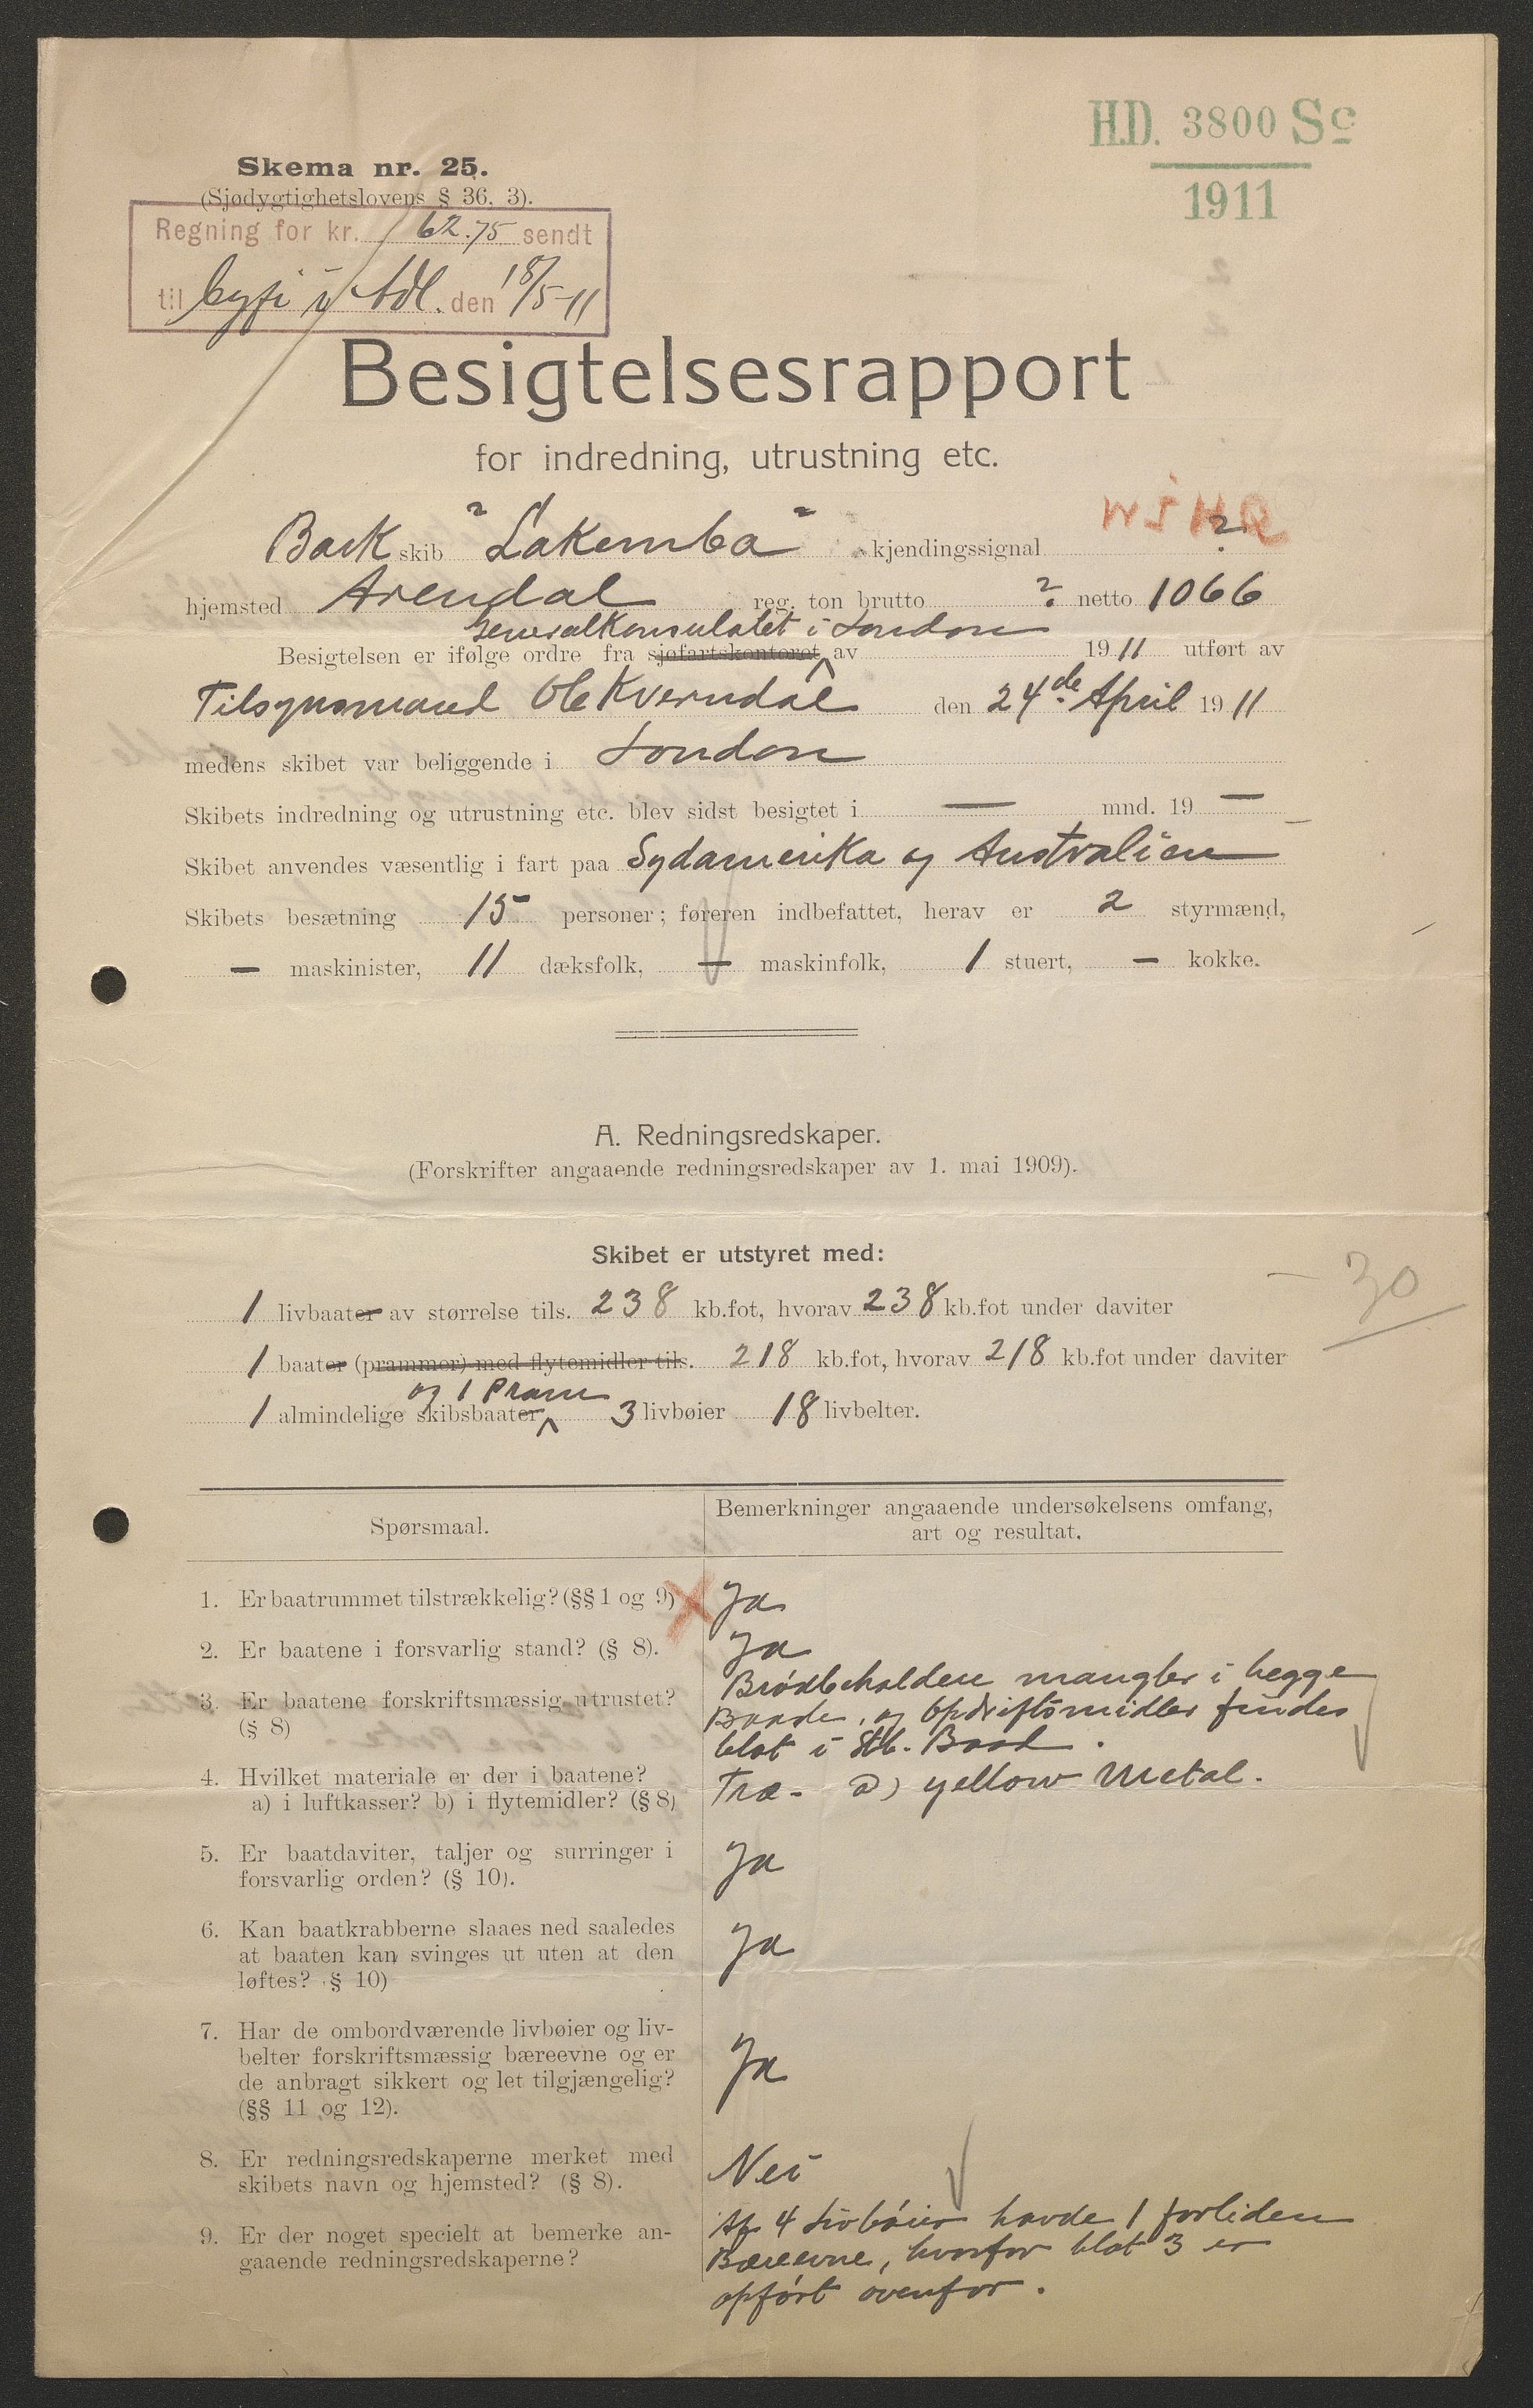 H.D. 3800 Sc
1911
Skema nr. 25.
(Sjødygtighetslovens § 36, 3).
Regning for kr. 62.75 sendt
til byfi i Adl. den 18/5-11
Besigtelsesrapport
for indredning, utrustning etc.
Bark skib "Lakemba" kjendingssignal ?
hjemsted Arendal reg. ton brutto ? netto 1066
Generalkonsulatet i London
Besigtelsen er ifølge ordre fra sjøfartskontoret av 1911 utført av
Tilsynsmand Ole Kverndal den 24de April 1911
medens skibet var beliggende i London
Skibets indredning og utrustning etc. blev sidst besigtet i — mnd. 19 —
Skibet anvendes væsentlig i fart paa Sydamerika og Australien
Skibets besætning 15 personer; føreren indbefattet, herav er 2 styrmænd,
— maskinister, 11 dæksfolk, — maskinfolk, 1 stuert, — kokke.
A. Redningsredskaper.
(Forskrifter angaaende redningsredskaper av 1. mai 1909).
Skibet er utstyret med:
30
1 livbaater av størrelse tils. 238 kb.fot, hvorav 238 kb.fot under daviter
1 baater (prammer) med flytemidler tils. 218 kb.fot, hvorav 218 kb.fot under daviter
og 1 Pram
1 almindelige skibsbaater 3 livbøier 18 livbelter.
Spørsmaal.
Bemerkninger angaaende undersøkelsens omfang,
art og resultat.
1. Er baatrummet tilstrækkelig? (§§ 1 og 9)
Ja
2. Er baatene i forsvarlig stand? (§ 8).
Ja
3. Er baatene forskriftsmæssig utrustet?
(§ 8)
Brödbeholdere mangler i begge
Baade, og Opdriftsmidler findes
blot i Stb. Baad.
4. Hvilket materiale er der i baatene?
a) i luftkasser? b) i flytemidler? (§ 8)
Træ - a) yellow Metal.
5. Er baatdaviter, taljer og surringer i
forsvarlig orden? (§ 10).
Ja
6. Kan baatkrabberne slaaes ned saaledes
at baaten kan svinges ut uten at den
løftes? § 10)
Ja
7. Har de ombordværende livbøier og liv-
belter forskriftsmæssig bæreevne og er
de anbragt sikkert og let tilgjængelig?
(§§ 11 og 12).
Ja
8. Er redningsredskaperne merket med
skibets navn og hjemsted? (§ 8).
Nei
9. Er der noget specielt at bemerke an-
gaaende redningsredskaperne?
Af 4 Livbøier havde 1 forliden
Bæreevne, hvorfor blot 3 er
opført ovenfor.